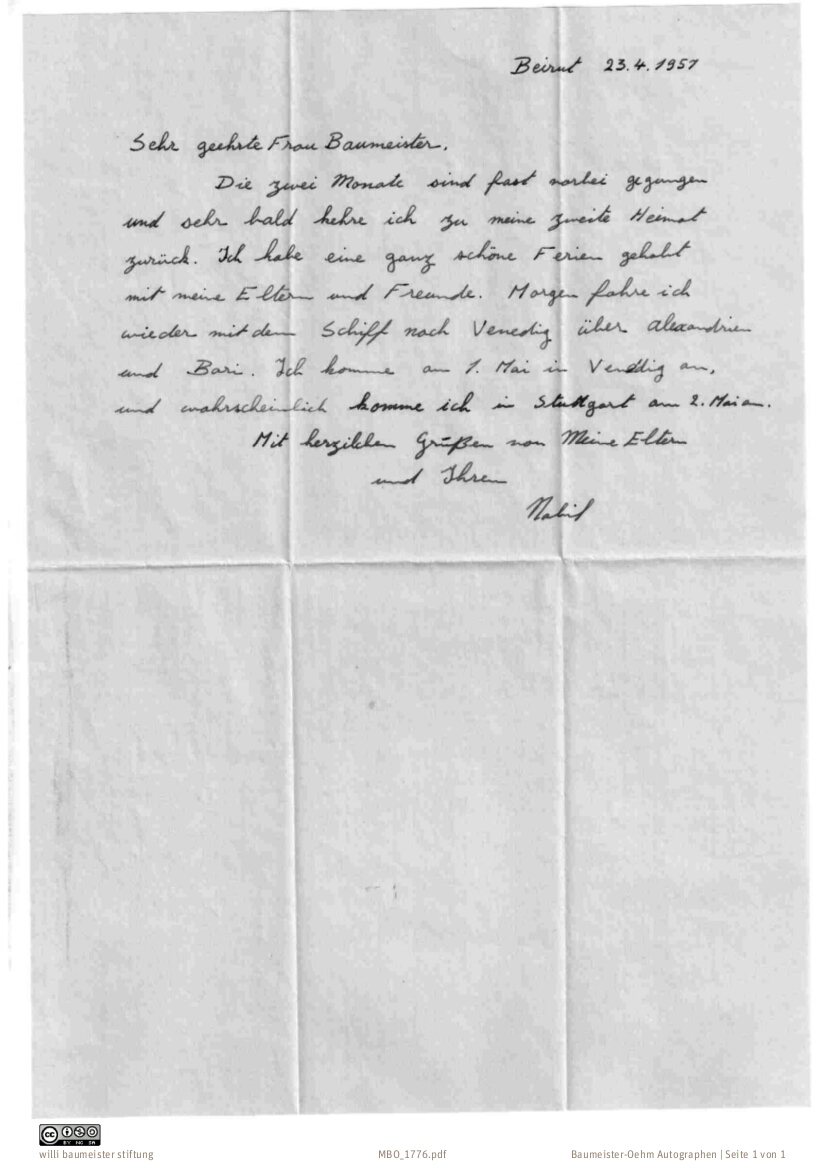 Beirut 23.4.1957
Sehr geehrte Frau Baumeister,
Die zwei Monate sind fast vorbei gegangen
und sehr bald kehre ich zu meine zweite Heimat
zurück. Ich habe eine ganz schöne Ferien gehabt
mit meine Eltern und Freunde. Morgen fahre ich
wieder mit dem Schiff nach Venedig über Alexandrien
und Bari. Ich komme am 1. Mai in Venedig an,
und wahrscheinlich komme ich in Stuttgart am 2. Mai an.
Mit herzilchen Grüßen von Meine Eltern
und Ihren
Nabil
BY NC SA
willi baumeister stiftung
MBO_1776.pdf
Baumeister-Oehm Autographen | Seite 1 von 1